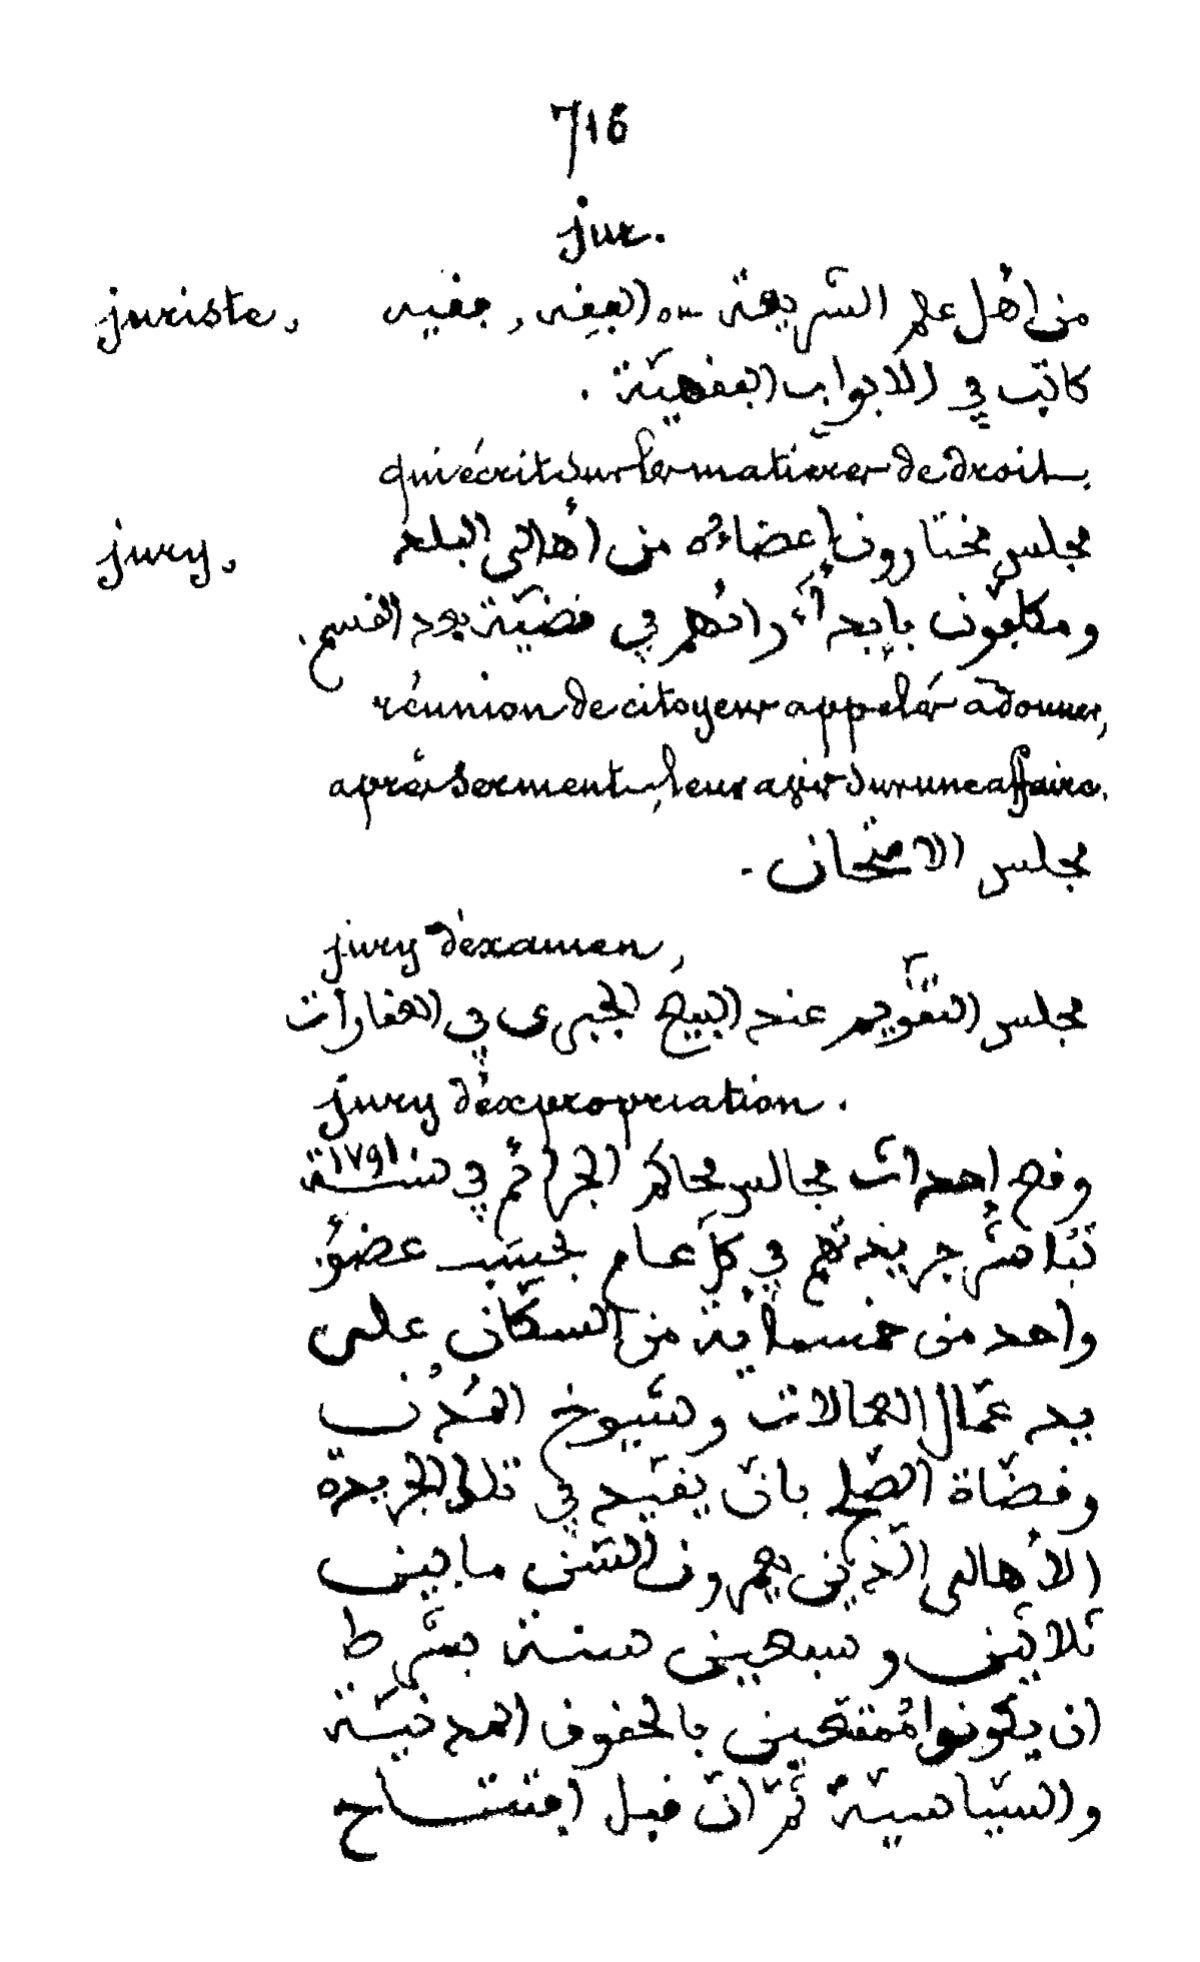 716
jur.
juriste, من اهل علم الشريعة ـــ الفقه , فقيه
كاتب في الابواب الفقهيّة .
qui écrit sur les matières de droit.
jury, مجلس مختارون اعضاءه من اهالى البلد
ومكلّفون بابدآء رائهم في قضيّة بعد القسم.
réunion de citoyens appelés à donner,
après serment, leur avis sur une affaire.
مجلس الامتحان -
jury d'examen,
مجلس التقويم عند البيع الجبرى في العقارات
jury d'expropriation.
وقع احداث مجالس محاكم الجرائم في سنة ١٧٩١
تباشر جريدتهم في كلّ عام بحسب عضو
واحد من خمسماية من السكّان على
يد عمّال العمالات وشيوخ المُدُن
وقضاة الصّلح بان يقيّد في تلك الجريدة
الأهالى الذين يعمرون السّنّ ما بين
ثلاثين وسبعين سنة بشرط
ان يكونوا مُمتّعين بالحقوق المدنيّة
والسّياسيّة ثمّ انّ قبل افتتاح